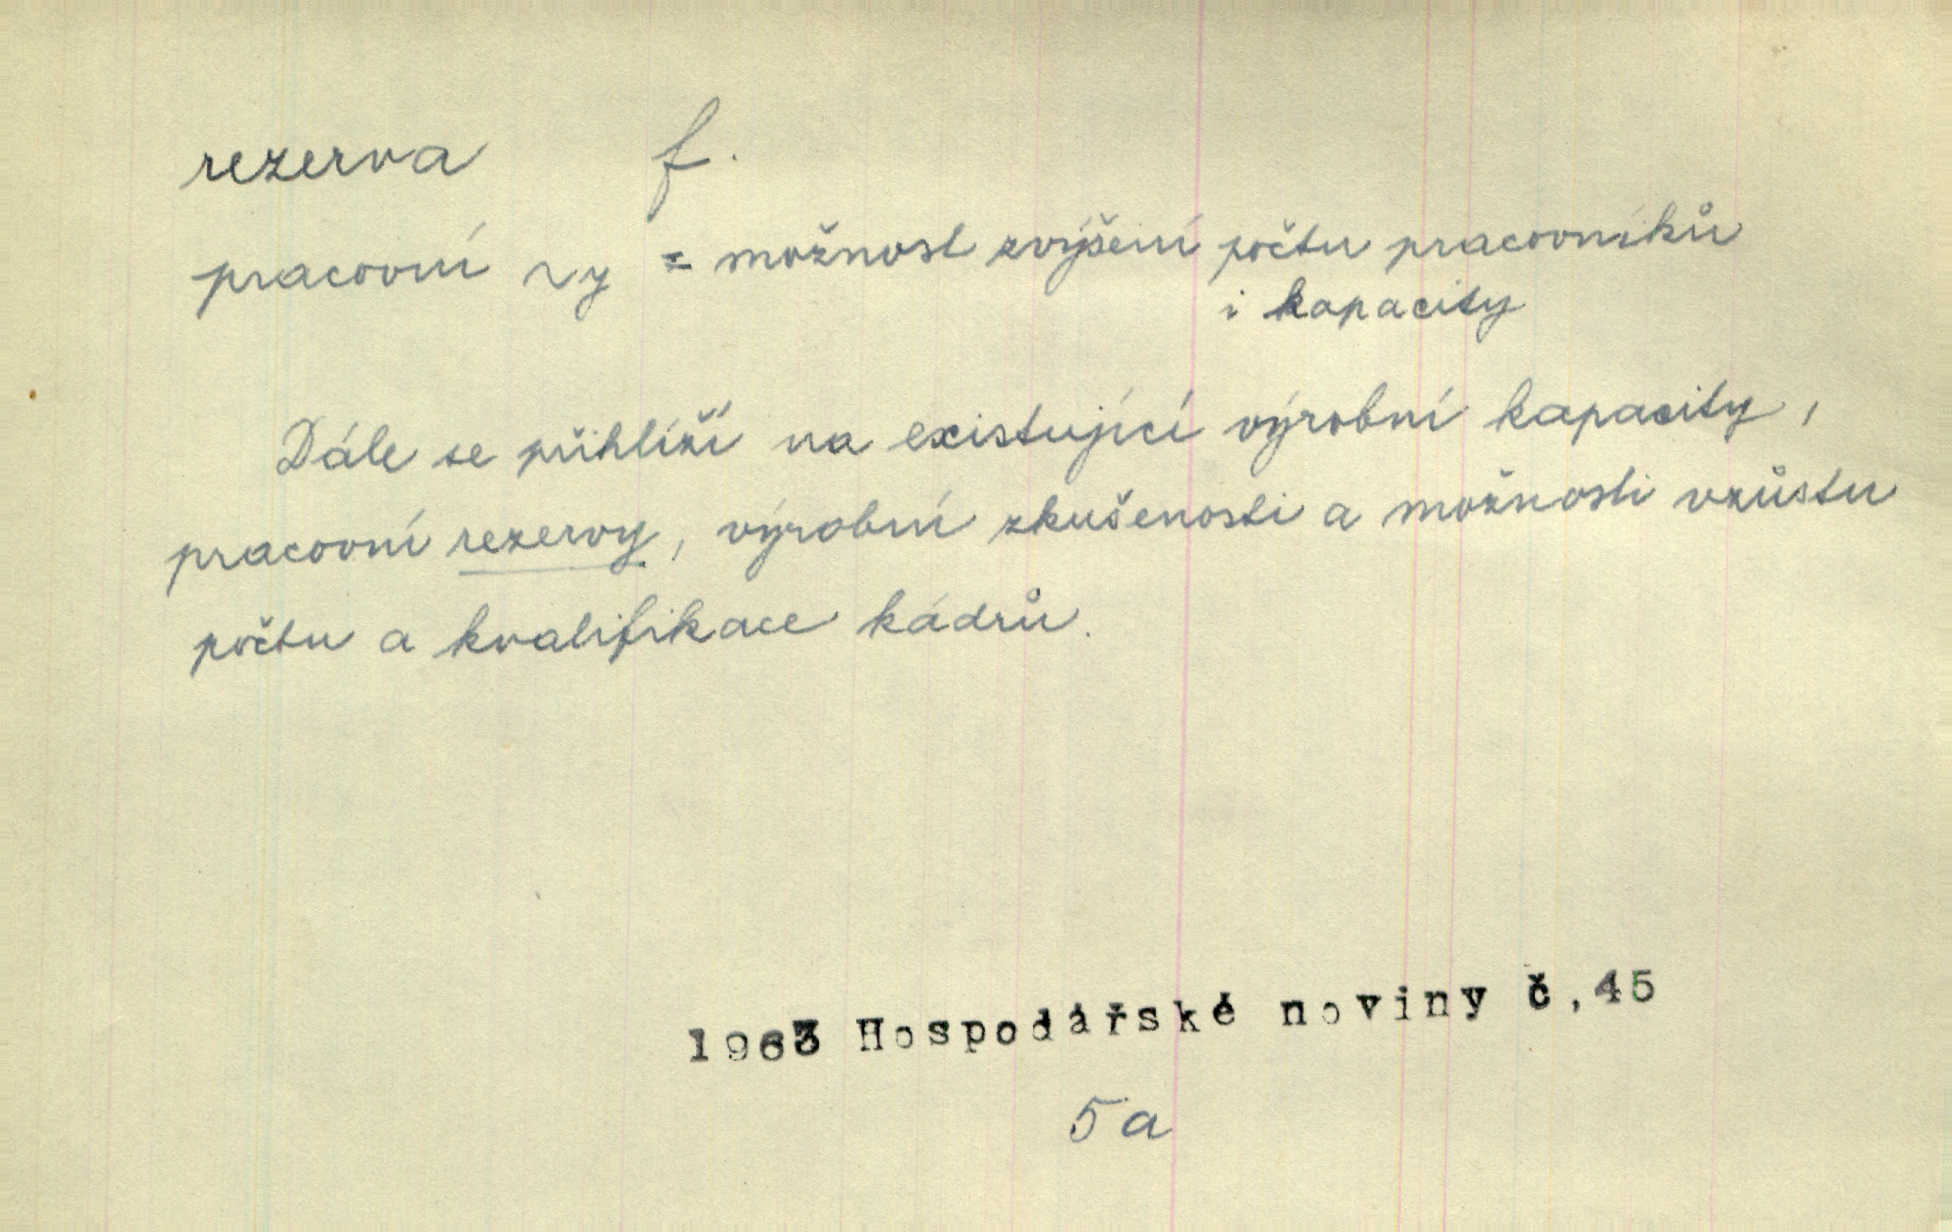 rezerva f.
pracovní ~y = možnost zvýšení počtu pracovníků
i kapacity
Dále se přihlíží na existující výrobní kapacity,
pracovní rezervy, výrobní zkušenosti a možnosti vzůstu
počtu a kvalifikace kádrů.
1963 Hospodářské noviny č,45
5a